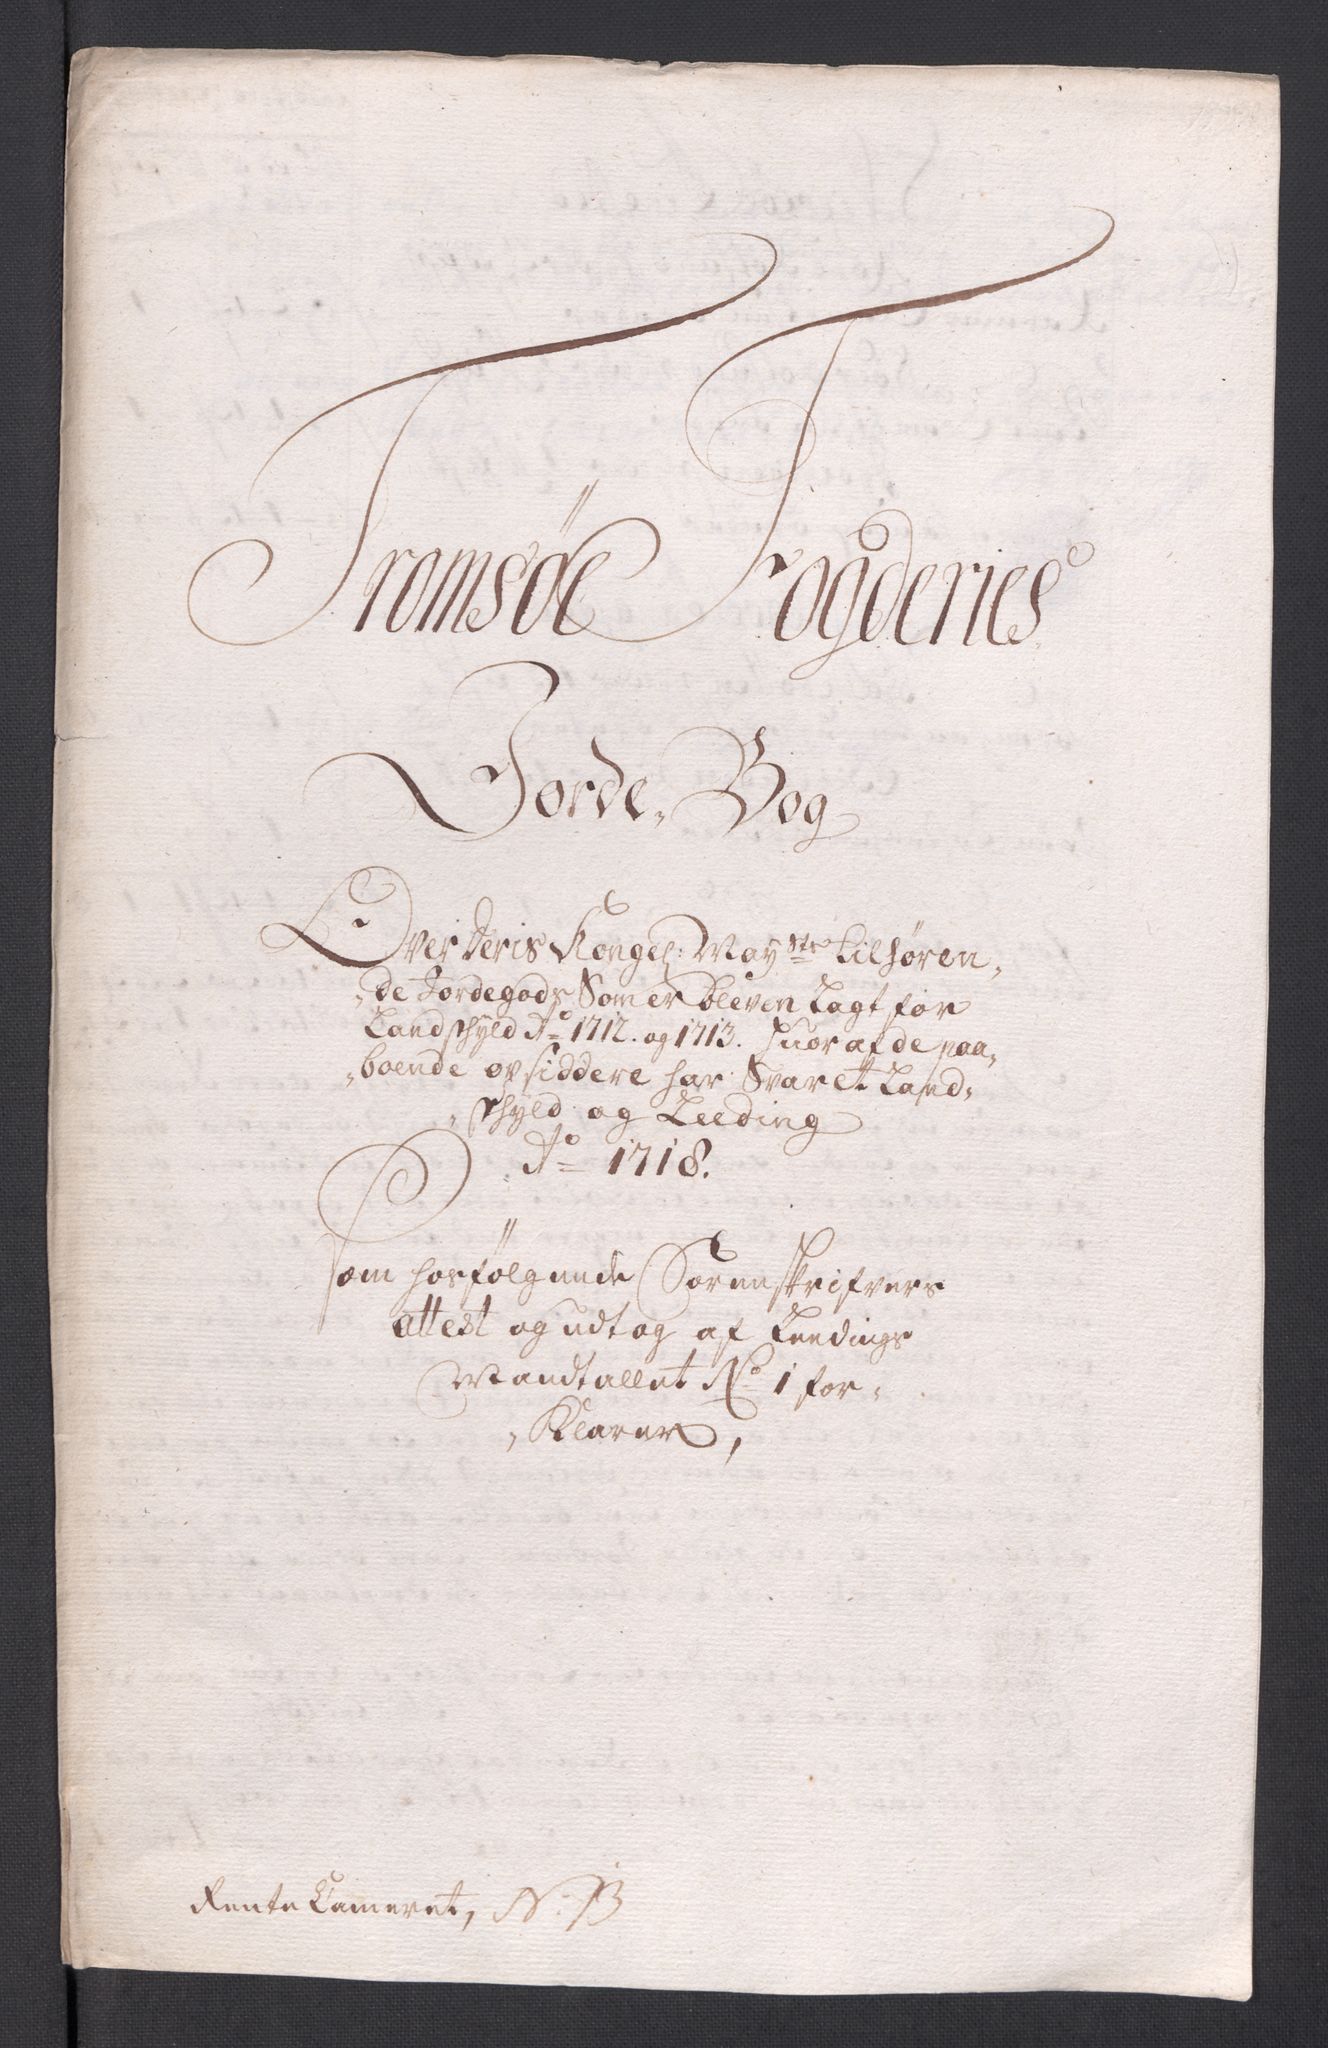 Tromsøe Fogderies
Jorde-Bog
Over Deris Kongel: May:sts tilhøren-
-de Jordegods Som er bleven Lagt for
Landschyld Ao 1712. og 1713. Huor af de paa-
-boende opsiddere har Svaret Land-
-schyld og Leeding
Ao 1718.
Som hosfølgende Sorenskrifvers
attest og udtog af Leedings
Mandtallet No 1 for-
-Klarer,
Rente Cameret, N: B